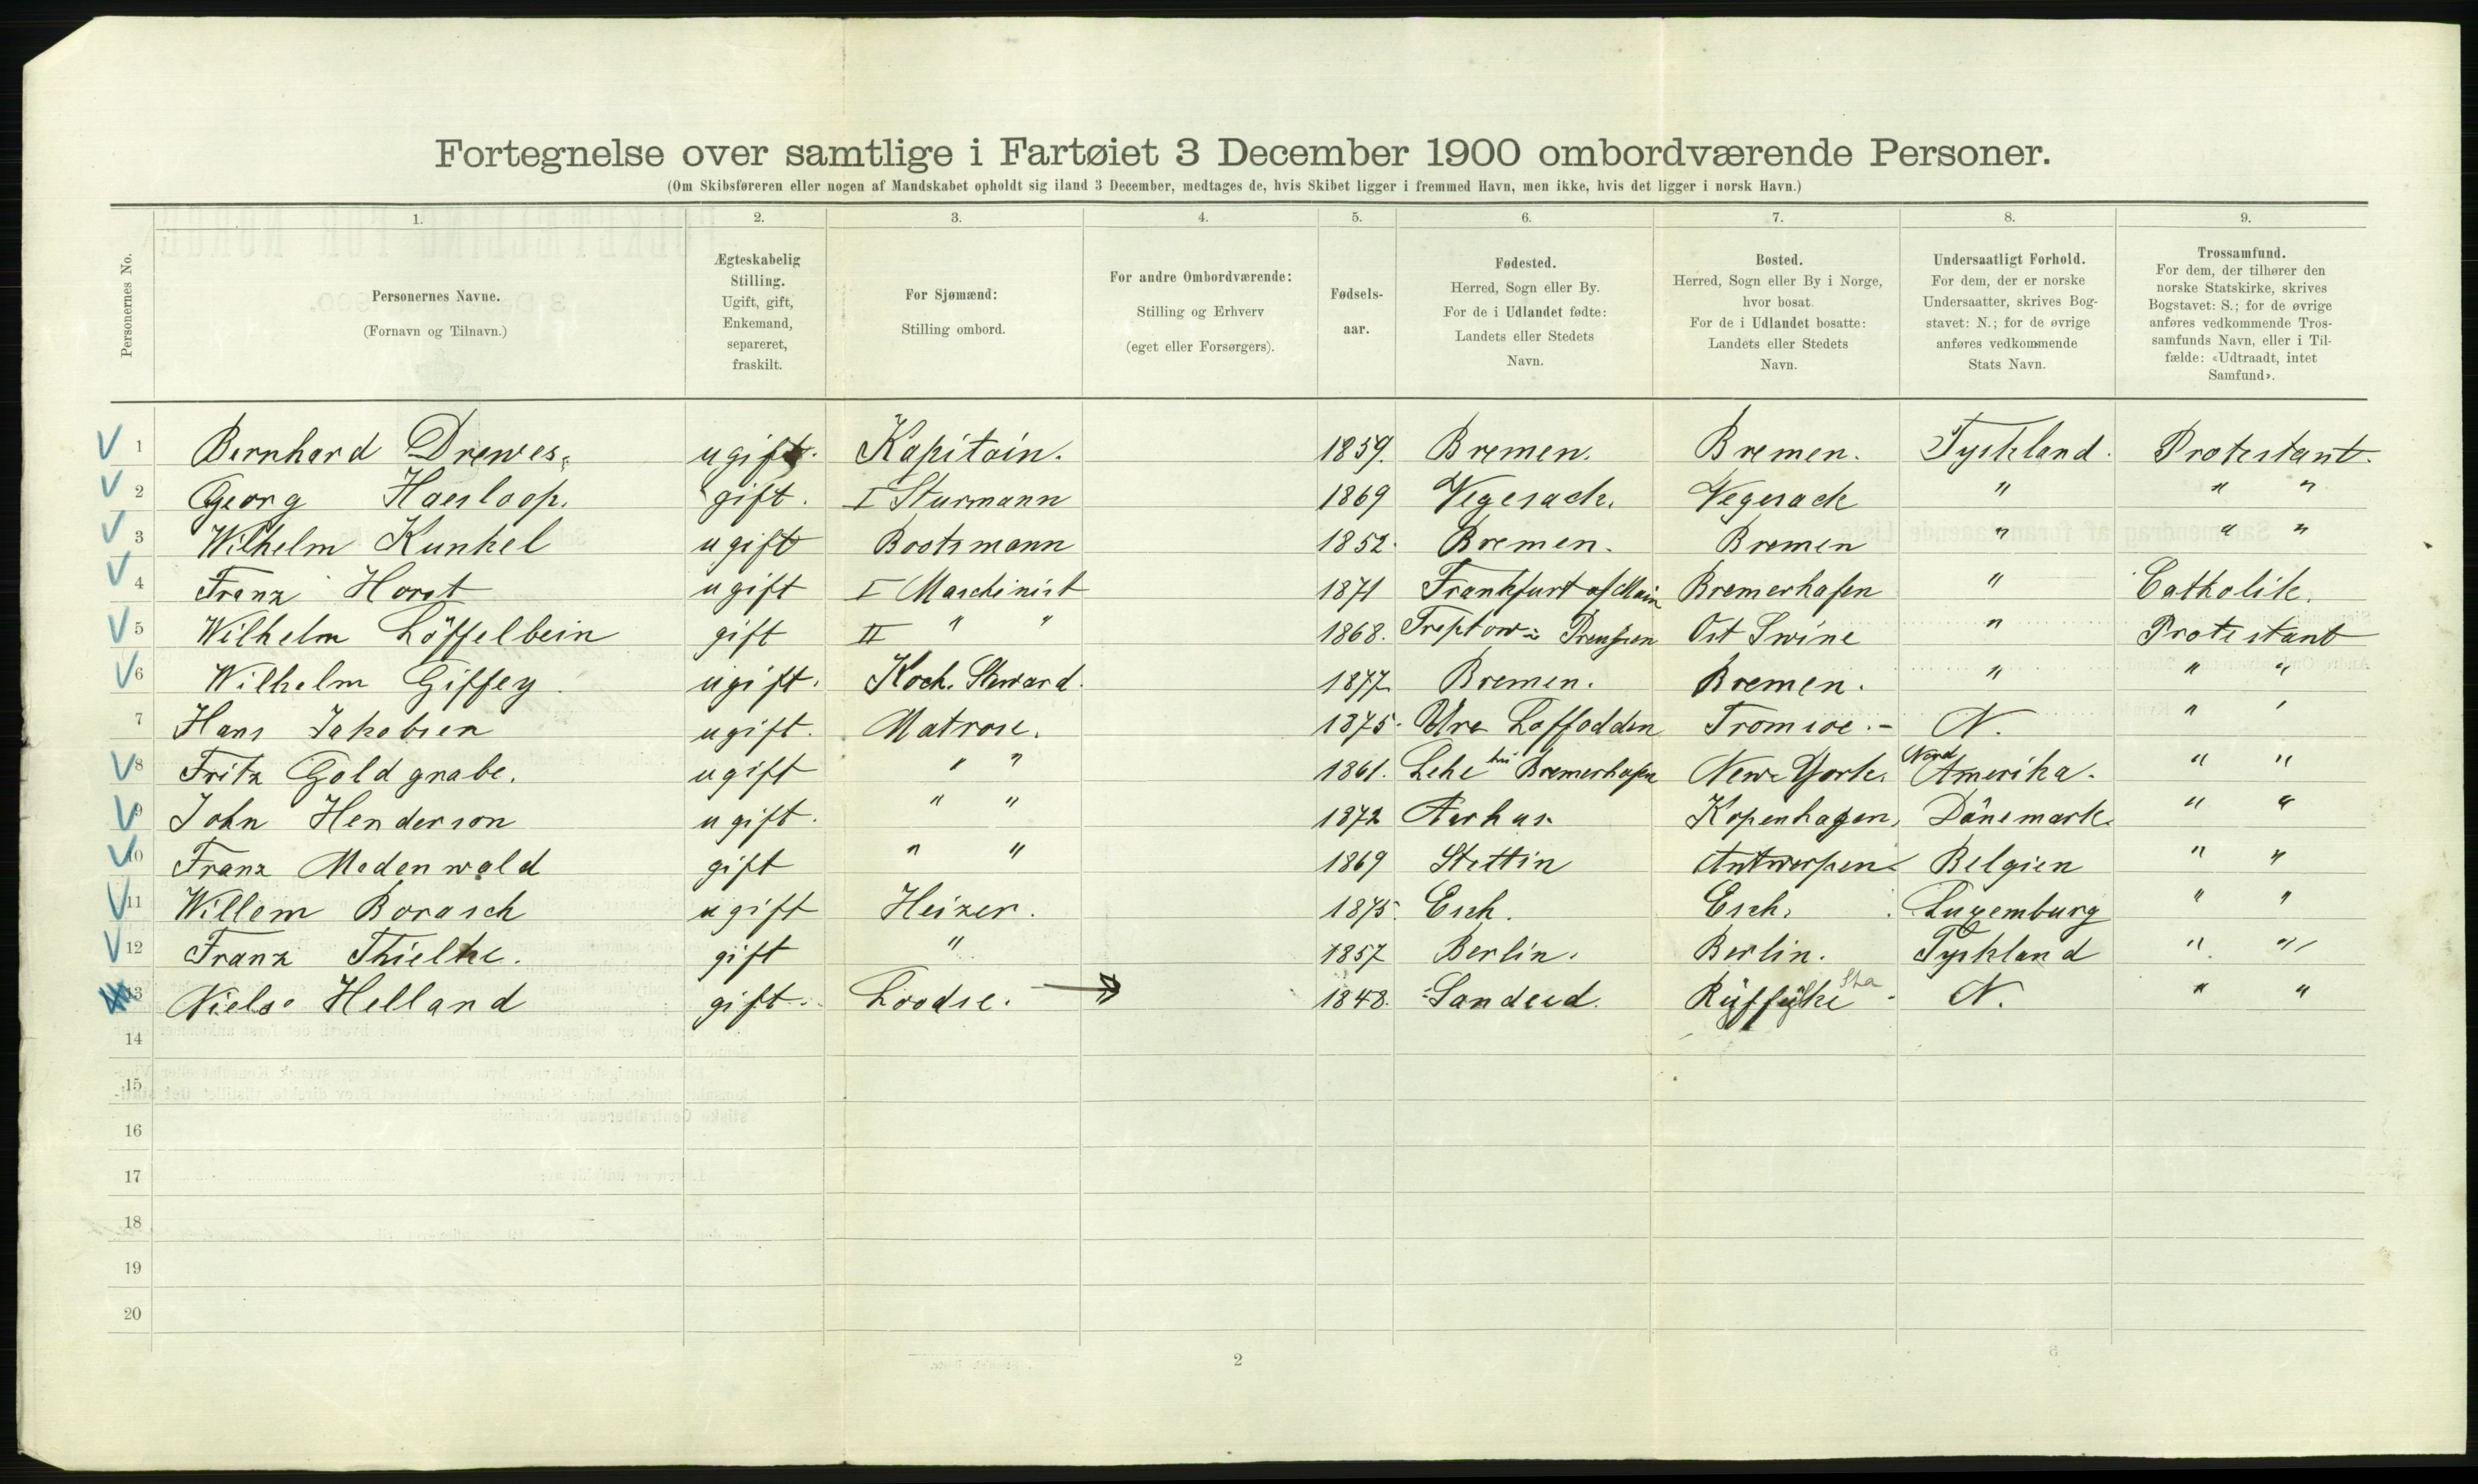 Fortegnelse over samtlige i Fartøiet 3 December 1900 ombordværende Personer.
(Om Skibsføreren eller nogen af Mandskabet opholdt sig iland 3 December, medtages de, hvis Skibet ligger i fremmed Havn, men ikke, hvis det ligger i norsk Havn.)
Personernes No.
1.
Personernes Navne.
(Fornavn og Tilnavn.)
2.
Ægteskabelig
Stilling.
Ugift, gift,
Enkemand,
separeret,
fraskilt.
3.
For Sjømænd:
Stilling ombord.
4.
For andre Ombordværende:
Stilling og Erhverv
(eget eller Forsørgers).
5.
Fødsels-
aar.
6.
Fødested.
Herred, Sogn eller By.
For de i Udlandet fødte:
Landets eller Stedets
Navn.
7.
Bosted.
Herred, Sogn eller By i Norge,
hvor bosat.
For de i Udlandet bosatte:
Landets eller Stedets
Navn.
8.
Undersaatligt Forhold.
For dem, der er norske
Undersaatter, skrives Bog-
stavet: N.; for de øvrige
anføres vedkommende
Stats Navn.
9.
Trossamfund.
For dem, der tilhører den
norske Statskirke, skrives
Bogstavet: S.; for de øvrige
anføres vedkommende Tros-
samfunds Navn, eller i Til-
fælde: «Udtraadt, intet
Samfund».
1 Bernhard Drewes. ugift. Kapitain. 1859. Bremen. Bremen. Tyskland. Protestant.
2 Georg Haesloop. gift. I Sturmann 1869 Vegesack. Vegesack " " "
3 Wilhelm Kunkel ugift Bootsmann 1852. Bremen. Bremen " " "
4 Franz Horst ugift I Maschinist 1871 Frankfurt a/Main Bremerhafen " Catholik.
5 Wilhelm Löffelbein gift II " " 1868. Treptow in Preussen Ost Swine " Protestant
6 Wilhelm Giffey. ugift. Koch. Steward. 1877 Bremen. Bremen. " " "
7 Hans Jakobsen ugift. Matrose. 1875. Loffodden Tromsoe.- N. " "
8 Fritz Goldgnabe. ugift " " 1861. Lehe bei Bremerhafen New-York. Nord Amerika. " "
9 John Henderson ugift. " " 1872 Aarhus. Kopenhagen, Dänemark. " "
10 Franz Madenwald gift " " 1869 Stettin Antwerpen Belgien " "
11 Willem Borasch ugift Heizer. 1875. Esch. Esch. Luxemburg " "
12 Franz Thielke. gift " 1857 Berlin. Berlin. Tyskland " "
13 Niels Helland gift. Loodse. 1848. Sandeid. Ryffylke Sta N. " "
14
15
16
17
18
19
20
2